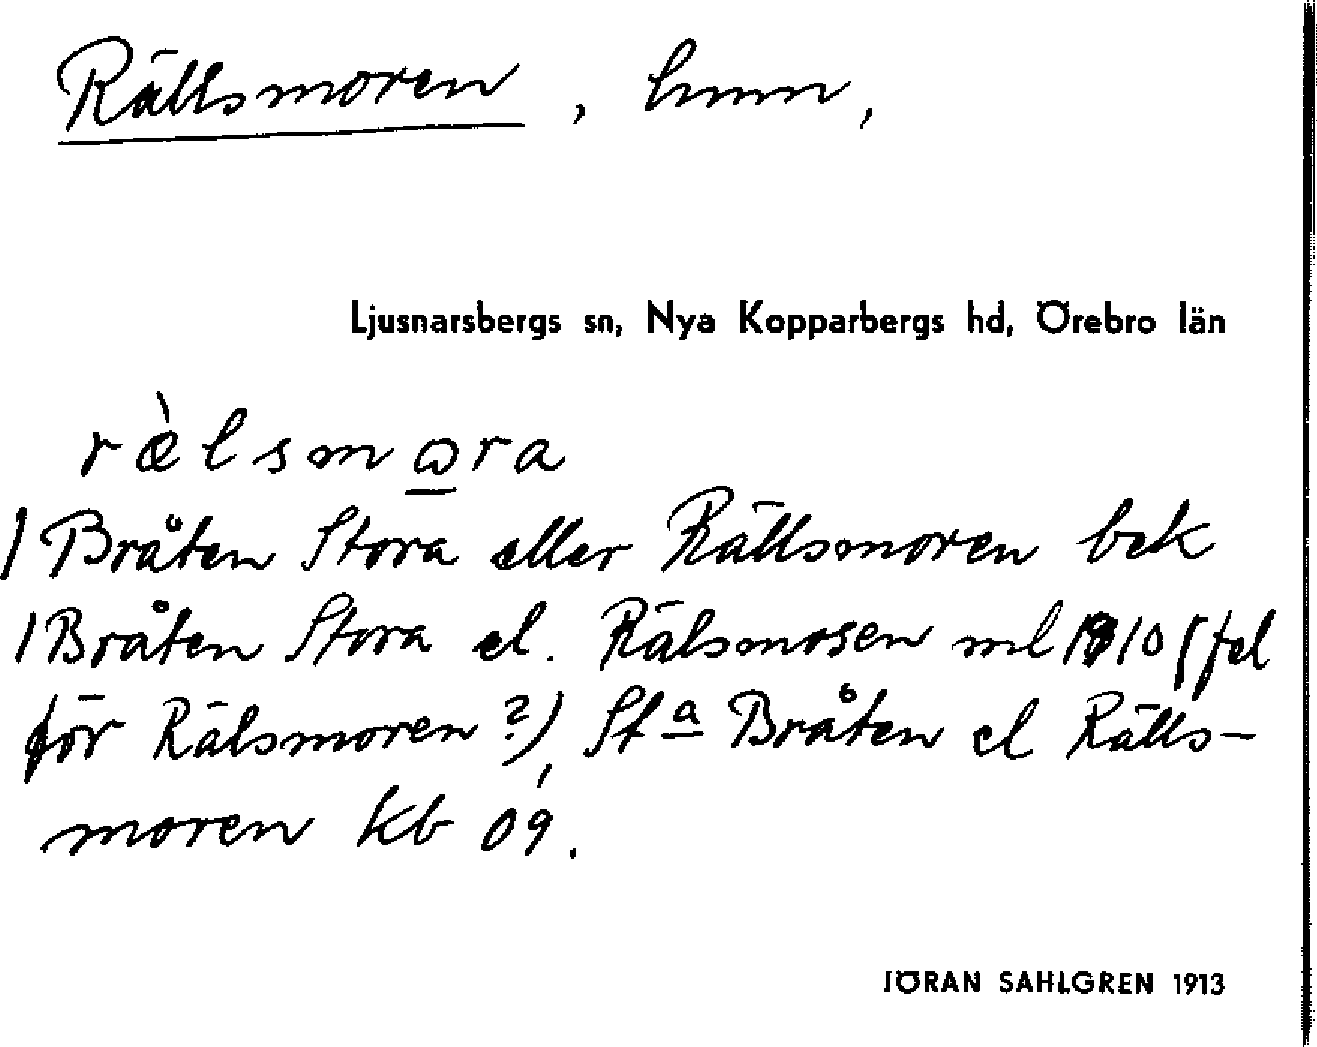 Rällsmoren, hmn,
Ljusnarsbergs sn, Nya Kopparbergs hd, Örebro län
ræ̀lsmɷra
/ Bråten Stora eller Rällsmoren bek
/ Bråten Stora el. Rälsmosen ml 1910 (fel
för Rälsmoren?), St<u>a</u> Bråten el Rälls-
moren Kb 09.
JÖRAN SAHLGREN 1913